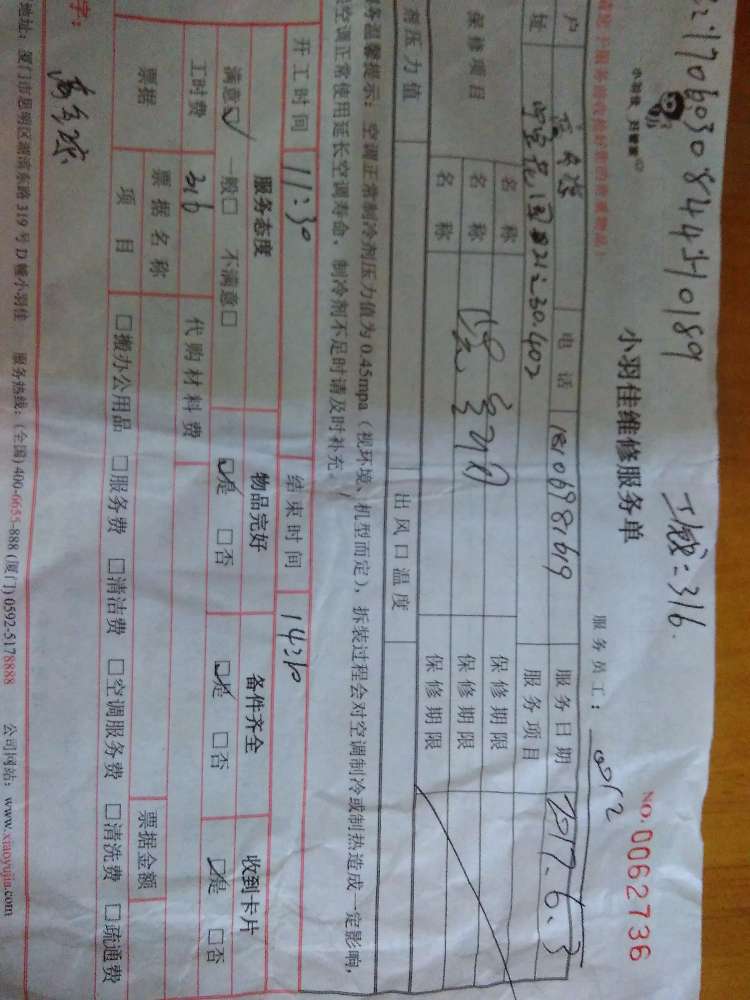 小羽佳 好管家
小羽佳维修服务单
NO.0062736
工钱=316.
服务员工：
户
电话 18106981619
服务日期 2017.6.3
址
服务项目
保修项目
名称
保修期限
名称
保修期限
名称
保修期限
剂压力值
出风口温度
务温馨提示：空调正常制冷剂压力值为0.45mpa（视环境、机型而定），拆装过程会对空调制冷或制热造成一定影响，
空调正常使用延长空调寿命，制冷剂不足时请及时补充。
开工时间 11:30
结束时间
服务态度
物品完好
备件齐全
收到卡片
满意☑ 一般□ 不满意□
☑是 □否
☑是 □否
☑是 □否
工时费 316
代购材料费
票据
票据名称
票据金额
项目
□搬办公用品 □服务费 □清洁费 □空调服务费 □清洗费 □疏通费
字：
地址：厦门市思明区湖滨东路319号D幢小羽佳 服务热线：(全国)400-6655-888 (厦门)0592-5178888 公司网站：www.xiaoyujia.com